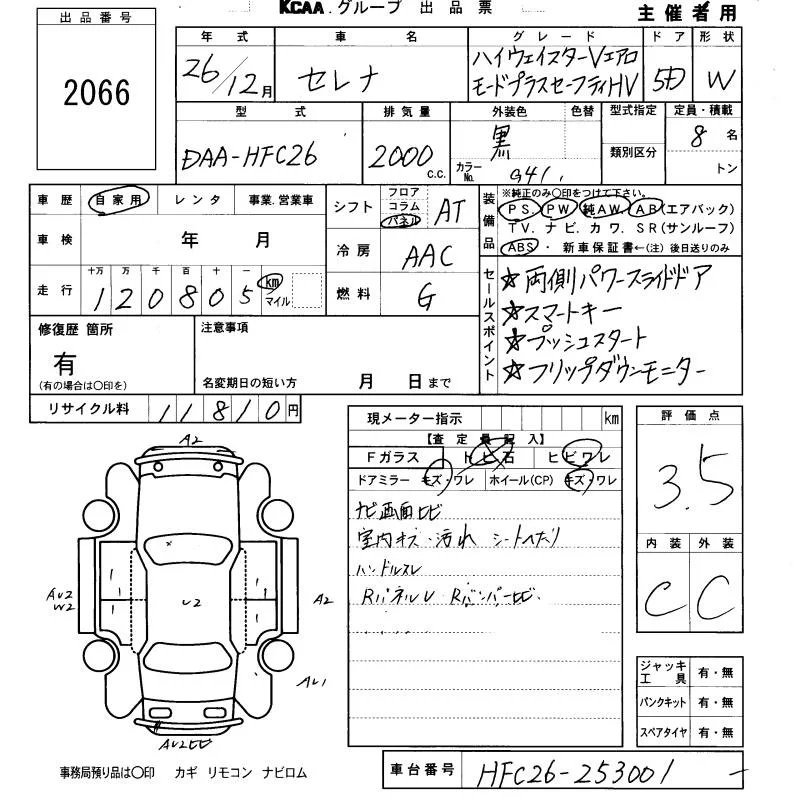 KCAA.グループ 出品票
主催者用
出品番号
2066
年式 車名 グレード ドア 形状
26/12月 セレナ ハイウェイスターVエアロ
モードプラスセーフティHV 5D W
型式 排気量 外装色 色替 型式指定 定員・積載
DAA-HFC26 2000 C.C. 黒 8名
カラーNo. G41 類別区分 トン
車歴 自家用 レンタ 事業.営業車
シフト フロア コラム パネル AT
装備品 ※純正のみ〇印をつけて下さい。
PS. PW 純AW. AB(エアバック)
TV. ナビ. カワ. SR(サンルーフ)
ABS・ 新車保証書←(注)後日送りのみ
車検 年 月
冷房 AAC
走行 十万 万 千 百 十 一
120805 km マイル
燃料 G
セールスポイント
☆両側パワースライドドア
☆スマートキー
☆プッシュスタート
☆フリップダウンモニター
修復歴 箇所
有
(有の場合は〇印を)
注意事項
名変期日の短い方 月 日まで
リサイクル料 11810円
現メーター指示 km
【査定員記入】
Fガラス トビ石 ヒビワレ
ドアミラー キズ・ワレ ホイール(CP) キズ・ワレ
ナビ画面ヒビ
室内キズ・汚れ シートヘタリ
ハンドルスレ
RパネルU Rバンパーヒビ
評価点
3.5
内装 外装
C C
A2
AU2
W2
U2
A2
AU1
AU2ヒビ
ジャッキ工具 有・無
パンクキット 有・無
スペアタイヤ 有・無
事務局預り品は〇印 カギ リモコン ナビロム
車台番号 HFC26-253001